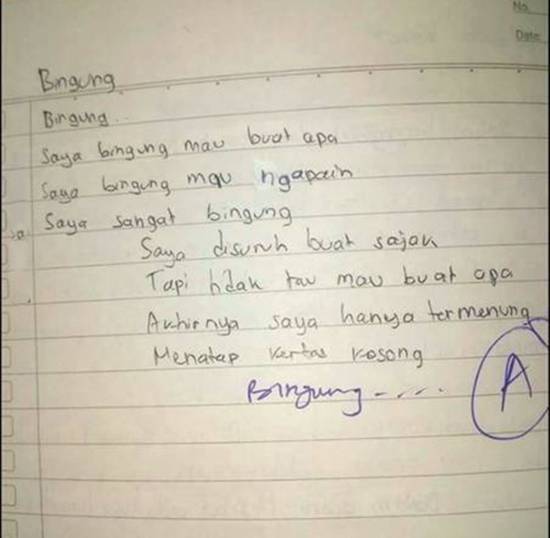 No.
Date:
Bingung
Bingung...
Saya bingung mau buat apa
Saya bingung mau ngapain
Saya sangat bingung
Saya disuruh buat sajak
Tapi tidak tau mau buat apa
Akhirnya saya hanya termenung
Menatap kertas kosong
Bingung-....
A